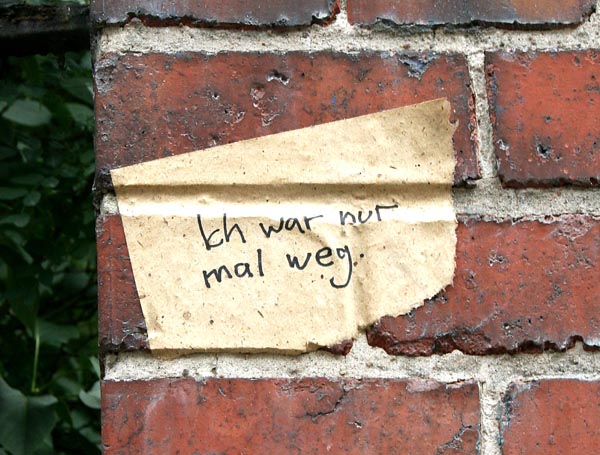 Ich war nur
mal weg.